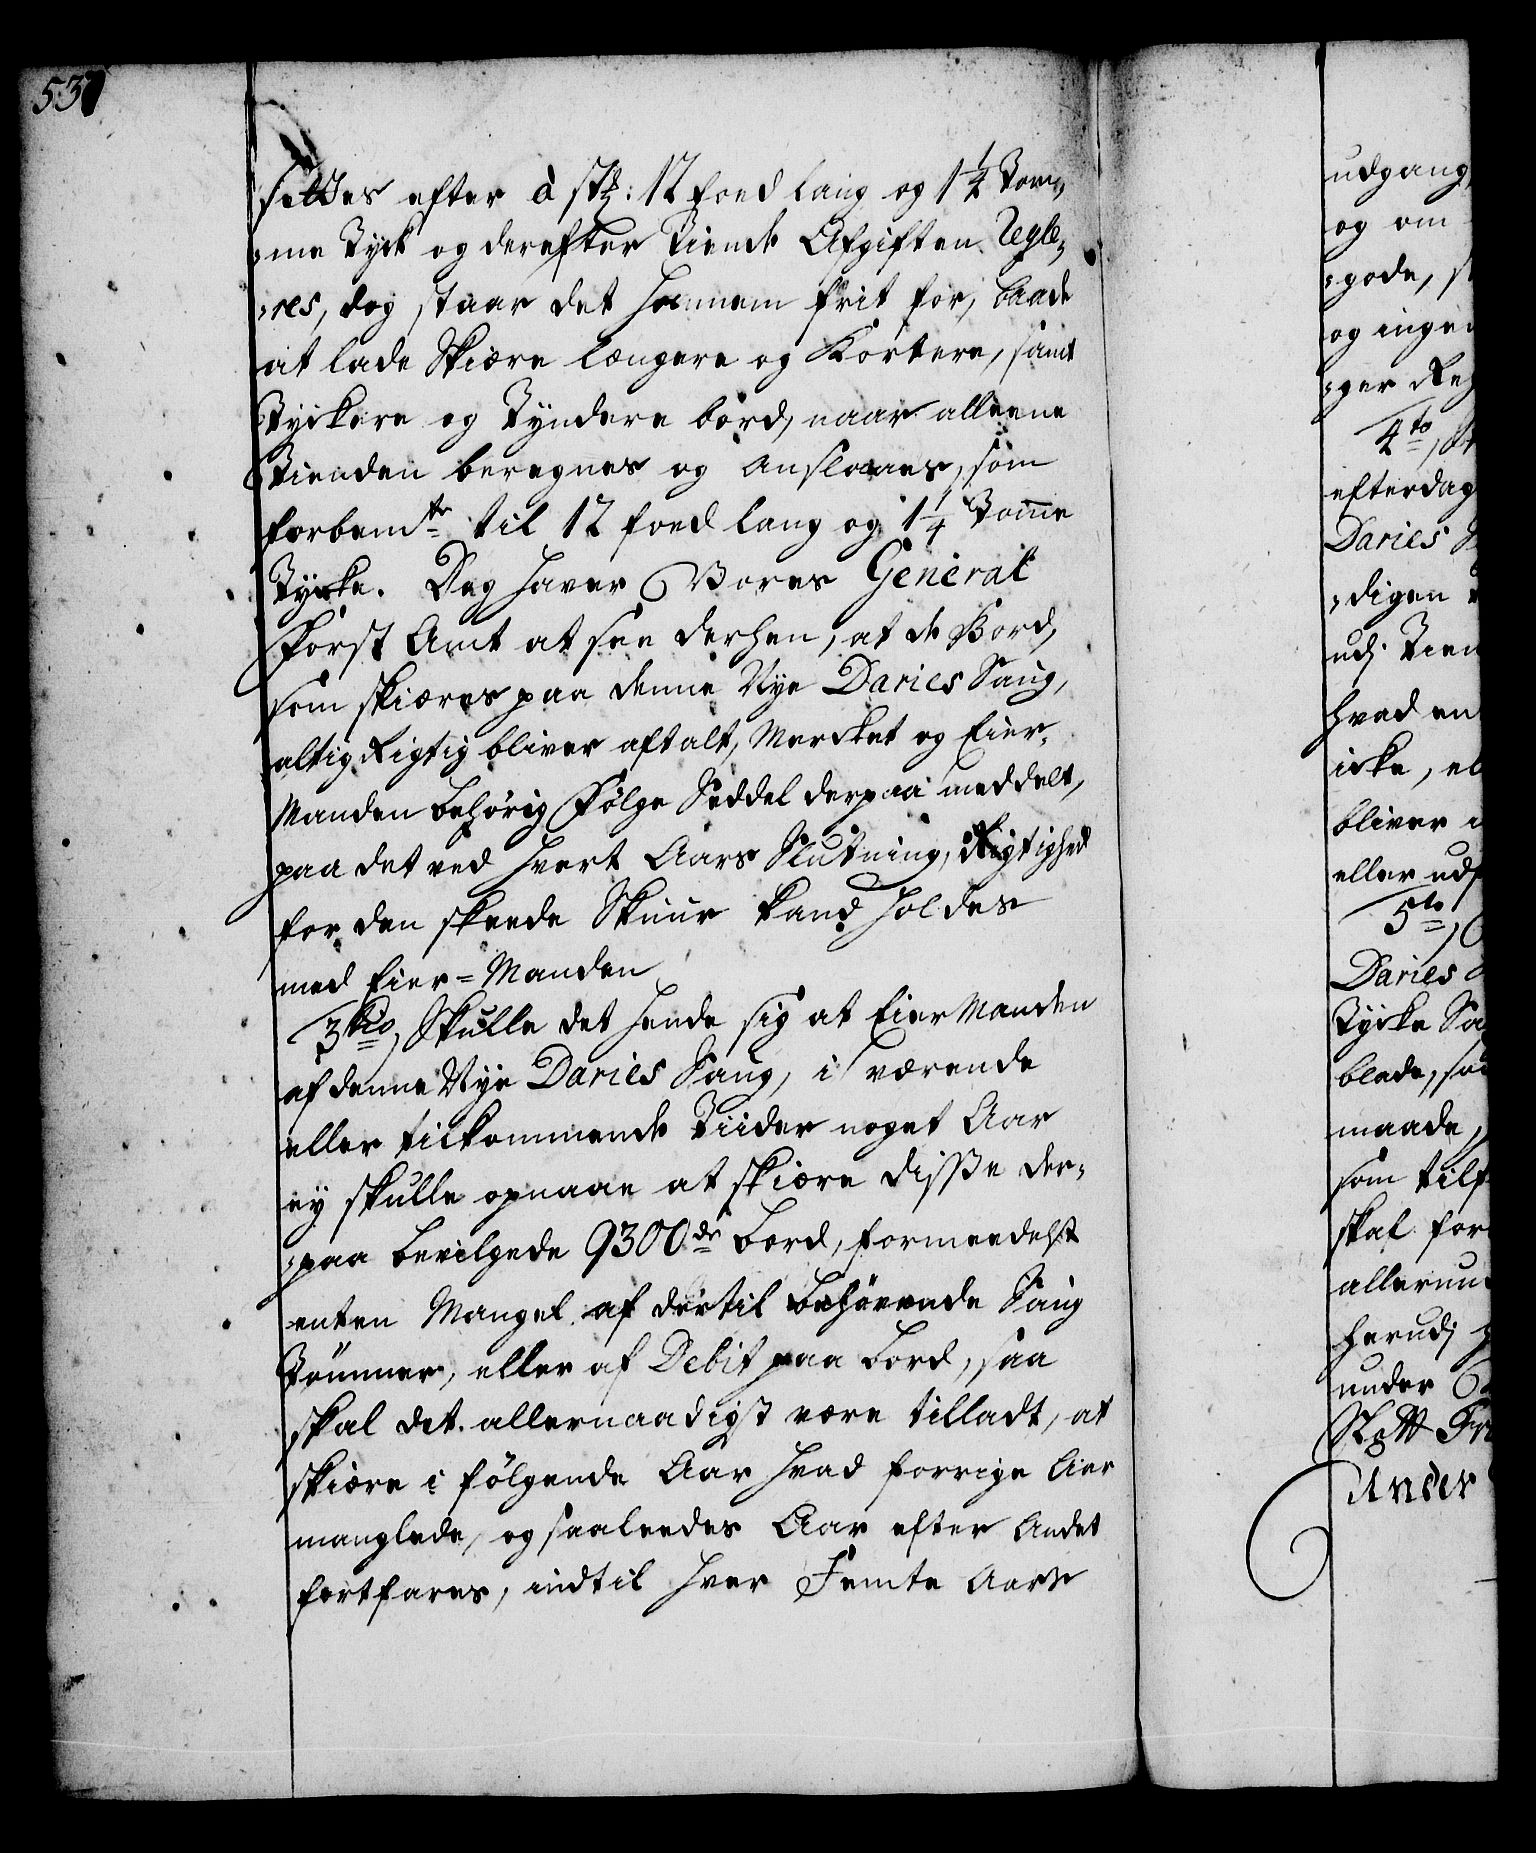 537
settes efter à stk: 12 foed lang og 1 1/4 Tom„
„me Tyck og derefter Tiende Afgiften Regle„
„res, dog staar det hannem frit for, baade
at lade Skiære længere og Kortere, samt
Tyckere og Tyndere bord, naar alleene
Tienden beregnes og anslaaes, som
forbemte til 12 foed lang og 1 1/4 Tomme
Tycke. Dog haver Vores General
Forst Amt at see derhen, at de Bord,
som skiæres paa denne Nye Daries Saug,
altig Rigtig bliver aftalt, Mercket og Eier„
Manden behörig Fölge Seddel derpaa meddelt,
paa det ved hvert Aars Slutning, Rigtighed
for den skeede Skuur kand holdes
med Eier-Manden
3tio, Skulle det hende sig at Eier Manden
af denne Nye Daries Saug, i værende
eller tilkommende Tiider noget Aar
ey skulle opnaae at skiære disse der„
„paa bevilgede 9300de bord, formedelst
enten Mangel af dertil behövende Saug
Tömmer, eller af Debit paa bord, saa
skal det allernaadigst være tilladt, at
skiære i fölgende Aar hvad forrige Aar
manglede, og saaleedes Aar efter andet
fortfares, indtil hver Femte Aars
udgang,
og om
„gode, s
og ingen
„ger Reg
4to,
efterdag
Daries
„digen
udj Tien
hvad en
icke, el
bliver
eller ud
5to,
Daries
Tycke Sa
blade, so
maade,
som tilf
skal for
allerun
herudj
under
Slott Fr
Under